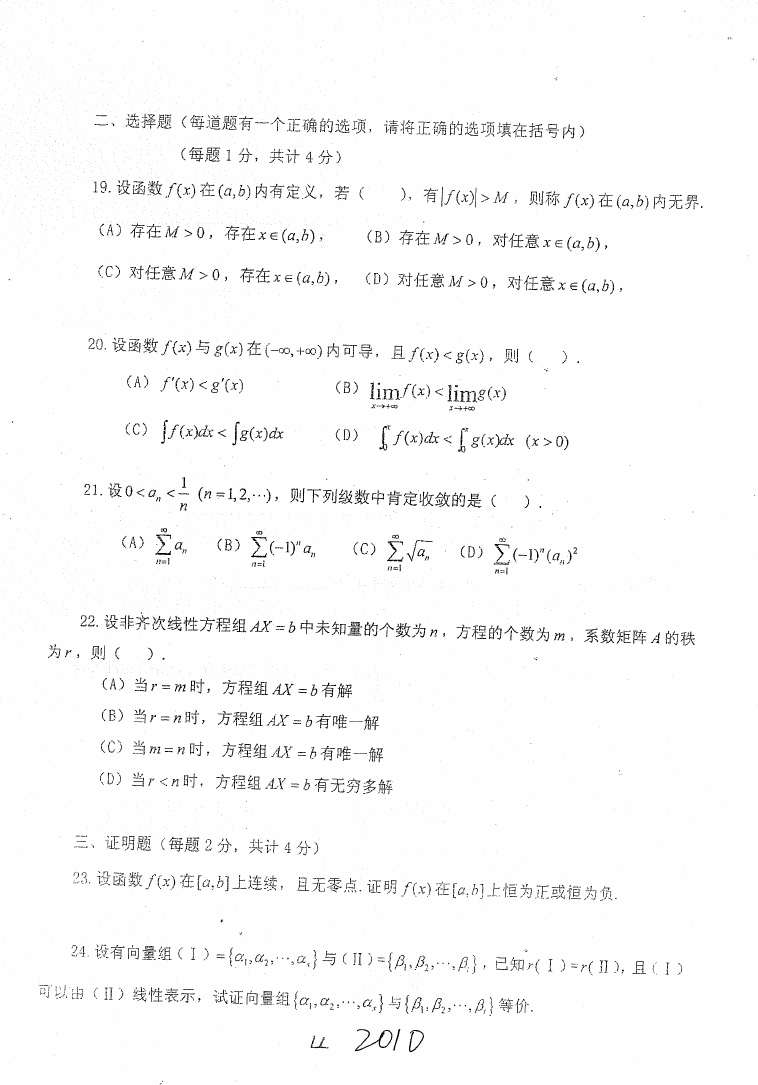 二、选择题（每道题有一个正确的选项，请将正确的选项填在括号内）
（每题 1 分，共计 4 分）
19. 设函数 f(x) 在 (a,b) 内有定义，若（　　），有 |f(x)| > M ，则称 f(x) 在 (a,b) 内无界.
（A）存在 M > 0 ，存在 x ∈ (a,b) ，　（B）存在 M > 0 ，对任意 x ∈ (a,b) ，
（C）对任意 M > 0 ，存在 x ∈ (a,b) ，　（D）对任意 M > 0 ，对任意 x ∈ (a,b) ，
20. 设函数 f(x) 与 g(x) 在 (−∞,+∞) 内可导，且 f(x) < g(x) ，则（　　）.
（A） f′(x) < g′(x)　（B） lim_{x→+∞} f(x) < lim_{x→+∞} g(x)
（C） ∫f(x)dx < ∫g(x)dx　（D） ∫_0^x f(x)dx < ∫_0^x g(x)dx (x > 0)
21. 设 0 < a_n < 1/n (n = 1,2,⋯) ，则下列级数中肯定收敛的是（　　）.
（A） ∑_{n=1}^∞ a_n　（B） ∑_{n=1}^∞ (−1)^n a_n　（C） ∑_{n=1}^∞ √a_n　（D） ∑_{n=1}^∞ (−1)^n (a_n)^2
22. 设非齐次线性方程组 AX = b 中未知量的个数为 n ，方程的个数为 m ，系数矩阵 A 的秩
为 r ，则（　　）.
（A）当 r = m 时，方程组 AX = b 有解
（B）当 r = n 时，方程组 AX = b 有唯一解
（C）当 m = n 时，方程组 AX = b 有唯一解
（D）当 r < n 时，方程组 AX = b 有无穷多解
三、证明题（每题 2 分，共计 4 分）
23. 设函数 f(x) 在 [a,b] 上连续，且无零点. 证明 f(x) 在 [a,b] 上恒为正或恒为负.
24. 设有向量组（Ⅰ）= {α_1,α_2,⋯,α_s} 与（Ⅱ）= {β_1,β_2,⋯,β_t} ，已知 r(Ⅰ) = r(Ⅱ)，且（Ⅰ）
可以由（Ⅱ）线性表示，试证向量组 {α_1,α_2,⋯,α_s} 与 {β_1,β_2,⋯,β_t} 等价.
2010